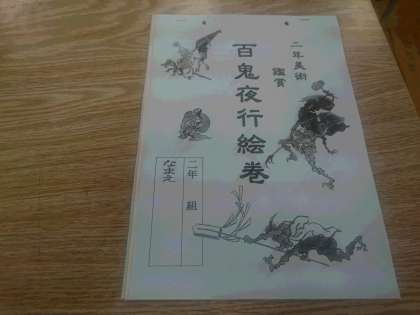 二年美術
鑑賞
百鬼夜行絵巻
二年　組